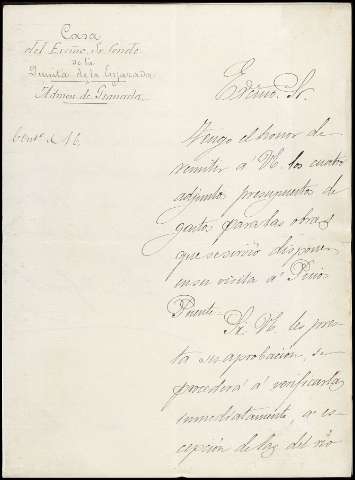 Casa
del Excmo. Sr. Conde
de la
Quinta de la Enjarada
Admon de Granada.
Excmo. Sr.
Tengo el honor de
remitir a V. los cuatro
adjuntos presupuestos de
gastos para las obras
que se sirvió disponer
en su visita á Pino-
Puente.
Si V. les pres
ta su aprobación, se
procederá á verificarlas
inmediatamente, a es
cepción de las del río